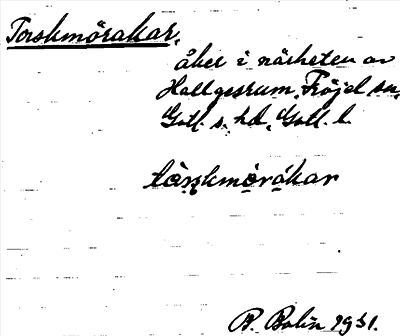 Torskmörakar,
åker i närheten av
Hallgesrum, Fröjel sn,
Gotl. s. hd, Gotl. l.
tòrskmòrákar
B. Bolin 1931.